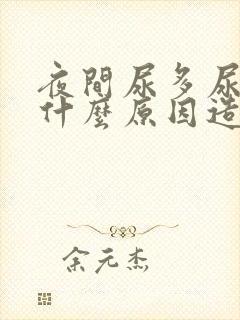 夜間尿多尿
什麼原因造
余元杰